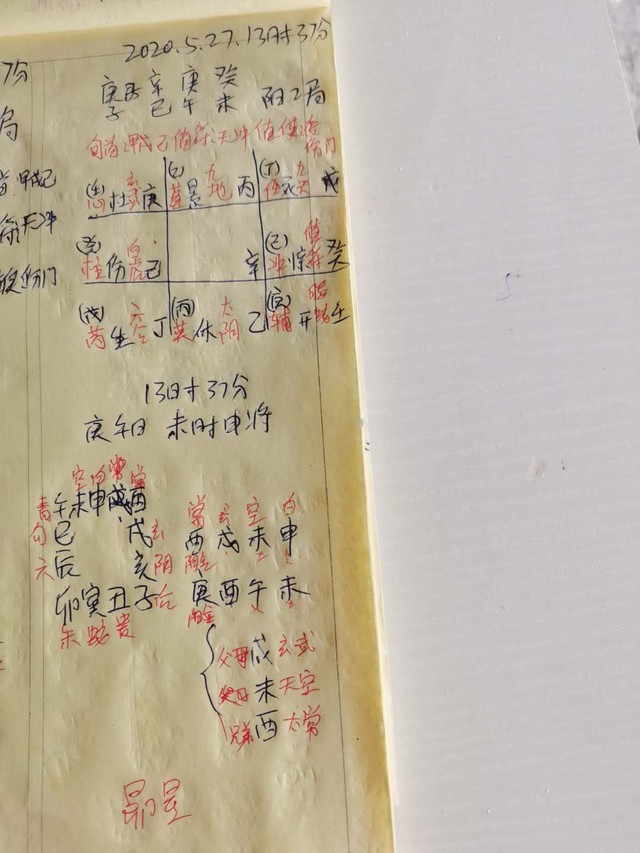 2020.5.27.13时37分
庚 辛 庚 癸
子 巳 午 未 阴2局
旬首:甲戌己值符:天冲值使:伤门
7分
局
甲戌己
天冲
伤门
杜 玄武 庚 (乙) 景 九地 丙 (丁) 九天 戊
(癸) 柱 伤 己 辛 (己) 冲 惊 值符 癸
(戊) 芮 生 六合 丁 (丙) 英 休 太阴 乙 (庚) 辅 开 壬
13时37分
庚午日 未时申将
空 白 常
青 午 未 申 酉
勾 巳 戌 玄
六 辰 亥 阴
卯 寅 丑 子 后
朱 贵
常 玄 空 白
酉 戌 未 申
庚 酉 午 未
父母 戌 玄武
父母 未 天空
兄弟 酉 太常
昴星